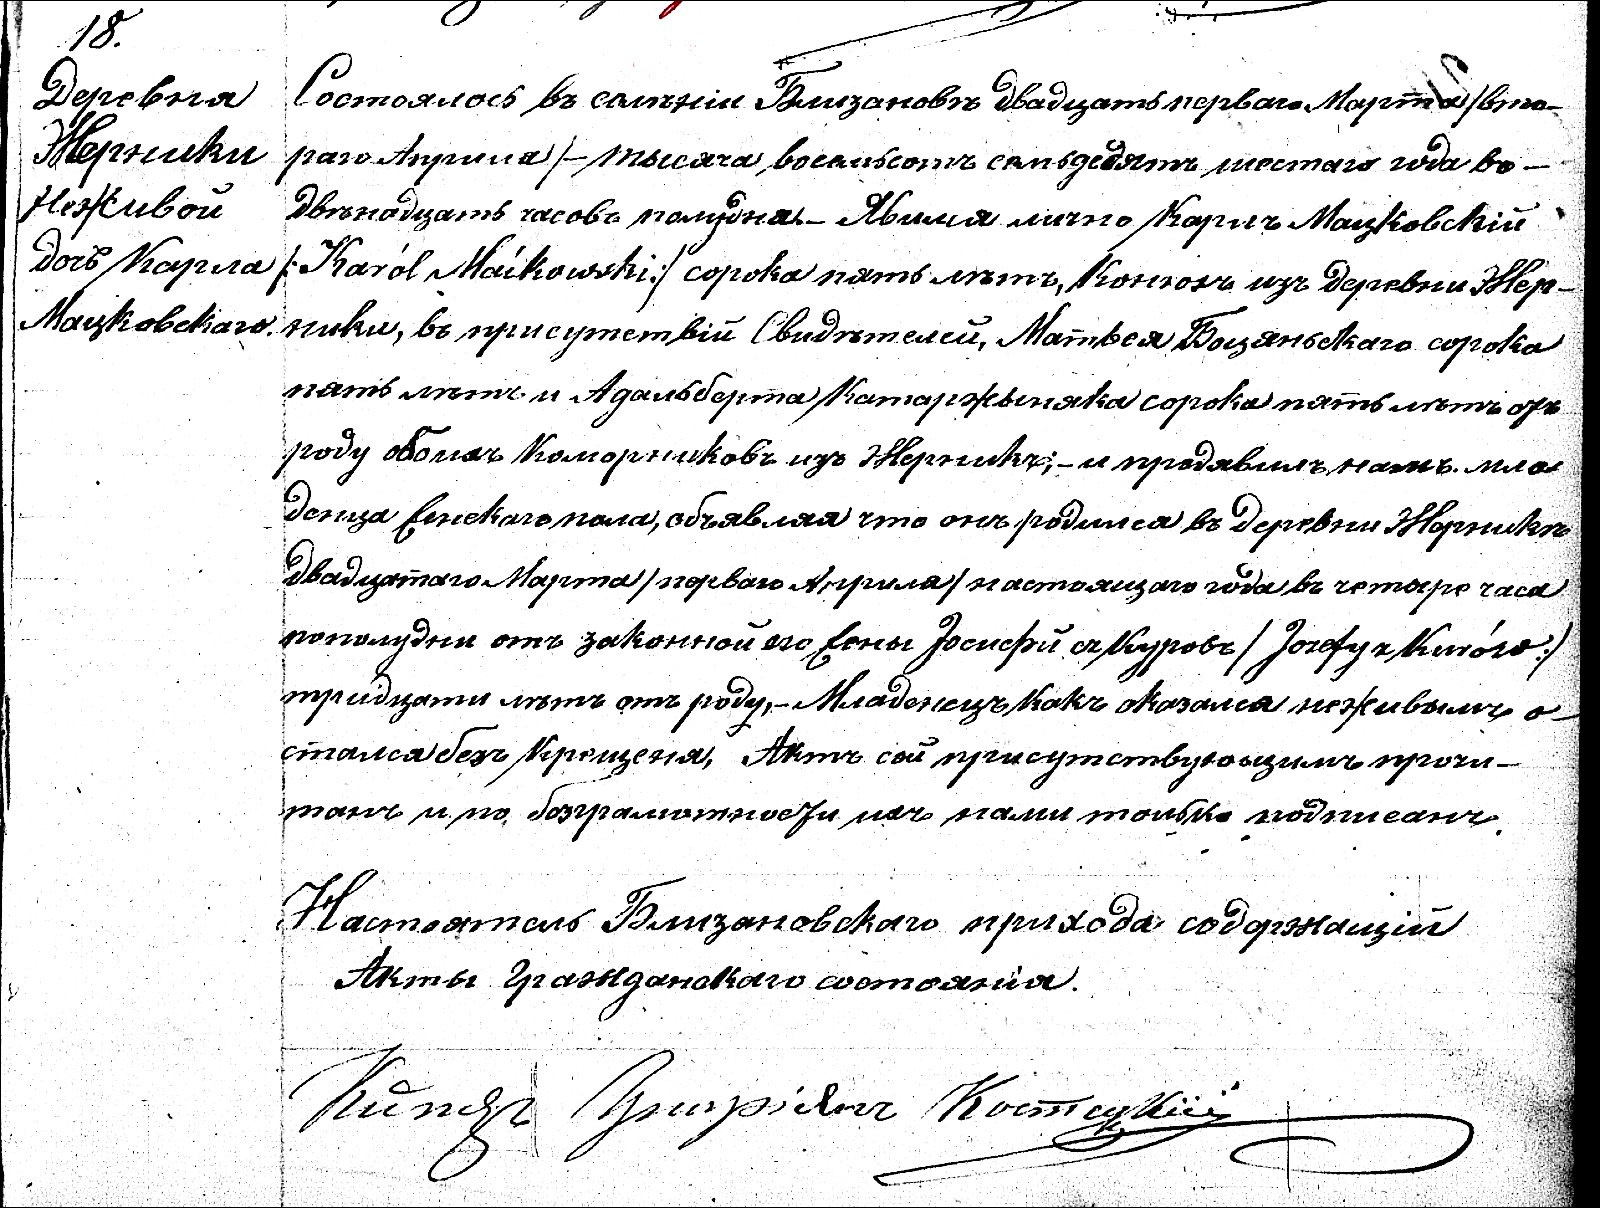 18.
Деревня
Жерники
Неживой
дочь Карла
Мацковскаго.
Состоялось въ селѣніи Близановѣ двадцать перваго Марта /вто-
раго Апрѣля/ – тысяча восемьсотъ семьдесятъ шестаго года во –
двѣнадцать часовъ полудня. – Явился лично Карлъ Мацковскій
/: Karól Maćkowski :/ сорока пять лѣтъ, Конюхъ изъ деревни Жер-
ники, въ присутствій Свидѣтелей, Матвея Боцяньскаго сорока
пять лѣтъ и Адальберта Катаржыняка сорока пять лѣтъ отъ
роду обоихъ Коморниковъ изъ Жерникъ; – и предявилъ намъ мла
денца женскаго пола, объявляя что онъ родился въ деревни Жерникъ
двадцатаго Марта /перваго Апрѣля/ настоящаго года въ четыре часа
пополудни отъ законной его жены Іосифы съ Куровъ /: Józefy z Kurów :/
тридцати лѣтъ отъ роду, – Младенецъ какъ оказался неживымъ о-
стался безъ Крещеня, Актъ сей присутствующимъ прочи-
танъ и по безграмотности ихъ нами только подписанъ.
Настоятель Близановскаго прихода содержащій
Акты Гражданскаго состоянія.
Ксендзъ Костецкій